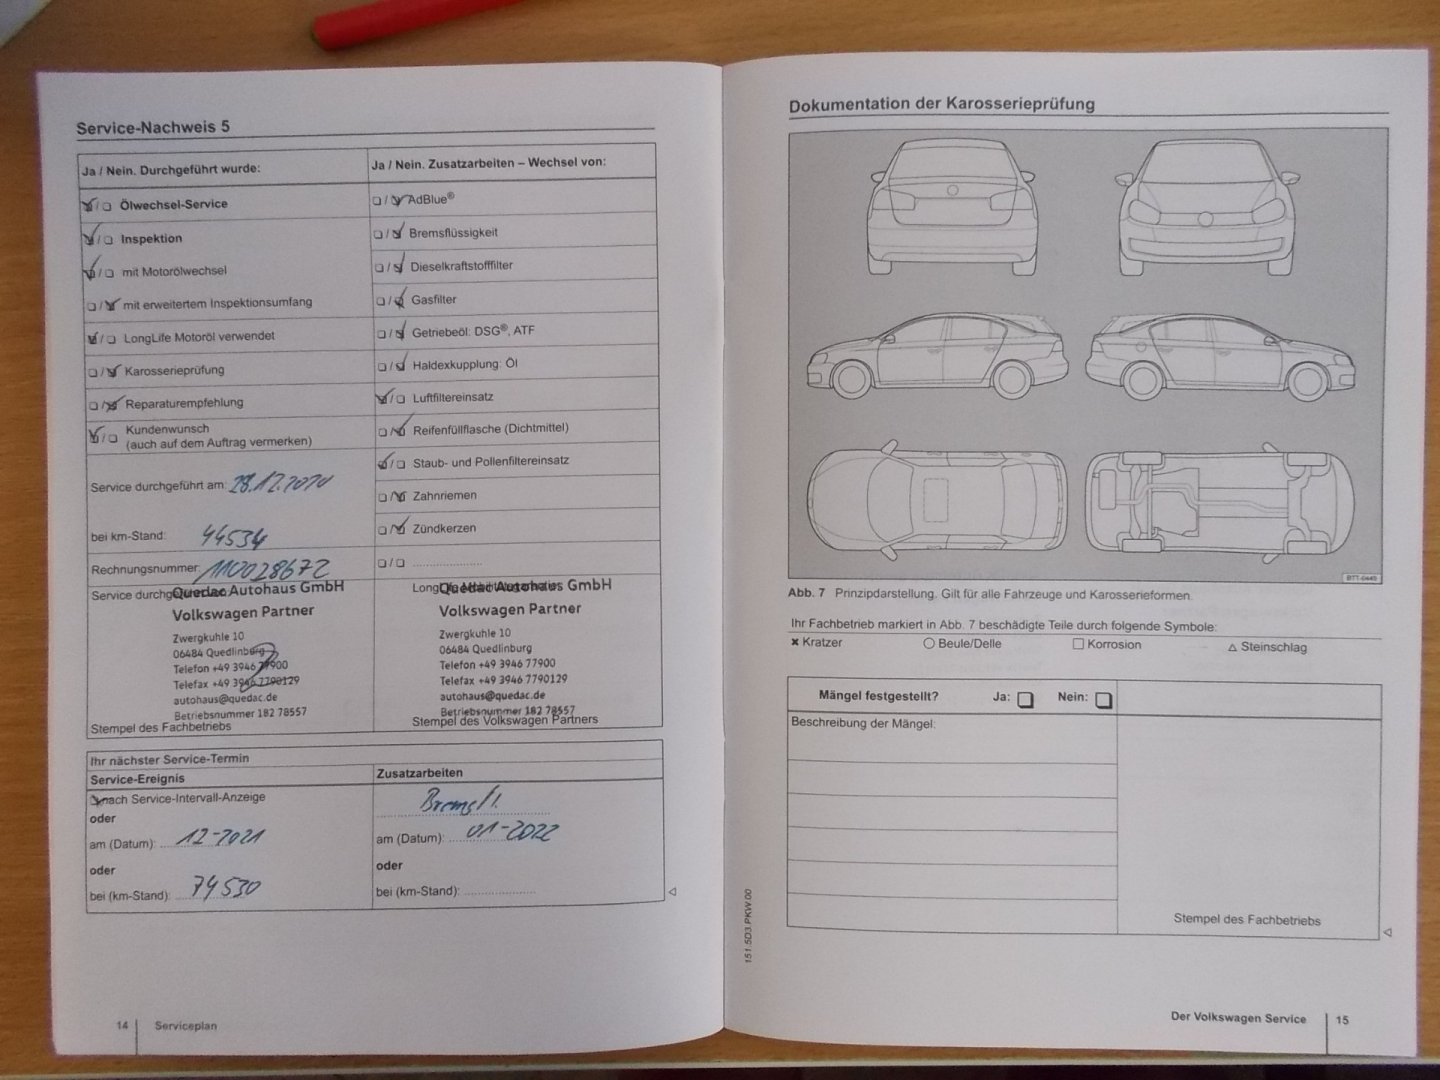 Service-Nachweis 5
Ja / Nein. Durchgeführt wurde:
Ölwechsel-Service
Inspektion
mit Motorölwechsel
mit erweitertem Inspektionsumfang
LongLife Motoröl verwendet
Karosserieprüfung
Reparaturempfehlung
Kundenwunsch
(auch auf dem Auftrag vermerken)
Service durchgeführt am: 28.12.2020
bei km-Stand: 44534
Rechnungsnummer: 110028672
Quedac Autohaus GmbH
Volkswagen Partner
Zwergkuhle 10
06484 Quedlinburg
Telefon +49 3946 77900
Telefax +49 3946 7790129
autohaus@quedac.de
Betriebsnummer 182 78557
Stempel des Fachbetriebs
Ja / Nein. Zusatzarbeiten – Wechsel von:
AdBlue®
Bremsflüssigkeit
Dieselkraftstofffilter
Gasfilter
Getriebeöl: DSG®, ATF
Haldexkupplung: Öl
Luftfiltereinsatz
Reifenfüllflasche (Dichtmittel)
Staub- und Pollenfiltereinsatz
Zahnriemen
Zündkerzen
Quedac Autohaus GmbH
Volkswagen Partner
Zwergkuhle 10
06484 Quedlinburg
Telefon +49 3946 77900
Telefax +49 3946 7790129
autohaus@quedac.de
Betriebsnummer 182 78557
Stempel des Volkswagen Partners
Ihr nächster Service-Termin
Service-Ereignis
nach Service-Intervall-Anzeige
oder
am (Datum): 12-2021
oder
bei (km-Stand): 74530
Zusatzarbeiten
Bremsfl.
am (Datum): 01-2022
oder
bei (km-Stand):
14 Serviceplan
Dokumentation der Karosserieprüfung
BTT-0445
Abb. 7 Prinzipdarstellung. Gilt für alle Fahrzeuge und Karosserieformen.
Ihr Fachbetrieb markiert in Abb. 7 beschädigte Teile durch folgende Symbole:
✖ Kratzer ○ Beule/Delle □ Korrosion △ Steinschlag
Mängel festgestellt? Ja: Nein:
Beschreibung der Mängel:
Stempel des Fachbetriebs
151.5D3.PKW.00
Der Volkswagen Service 15